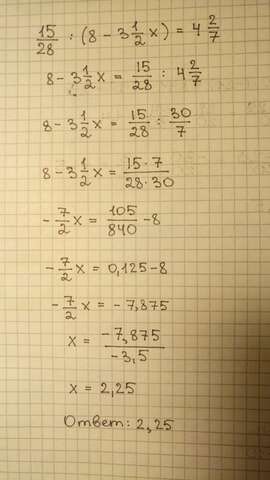 15/28 : (8 - 3 1/2 x) = 4 2/7
8 - 3 1/2 x = 15/28 : 4 2/7
8 - 3 1/2 x = 15/28 : 30/7
8 - 3 1/2 x = 15·7/28·30
- 7/2 x = 105/840 - 8
- 7/2 x = 0,125 - 8
- 7/2 x = - 7,875
x = -7,875/-3,5
x = 2,25
Ответ: 2,25